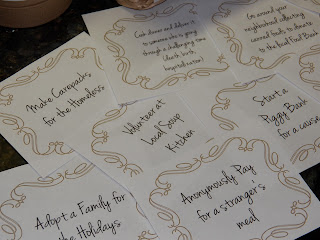 Cook dinner and deliver it
to someone who is going
through a challenging time
(death, birth,
hospitalization)
Go around your
neighborhood collecting
canned foods to donate
to the local Food Bank
Make Carepacks
for the Homeless
Volunteer at
Local Soup
Kitchen
Start a
Piggy Bank
for a cause
Adopt a Family for
the Holidays
Anonymously Pay
for a stranger's
meal